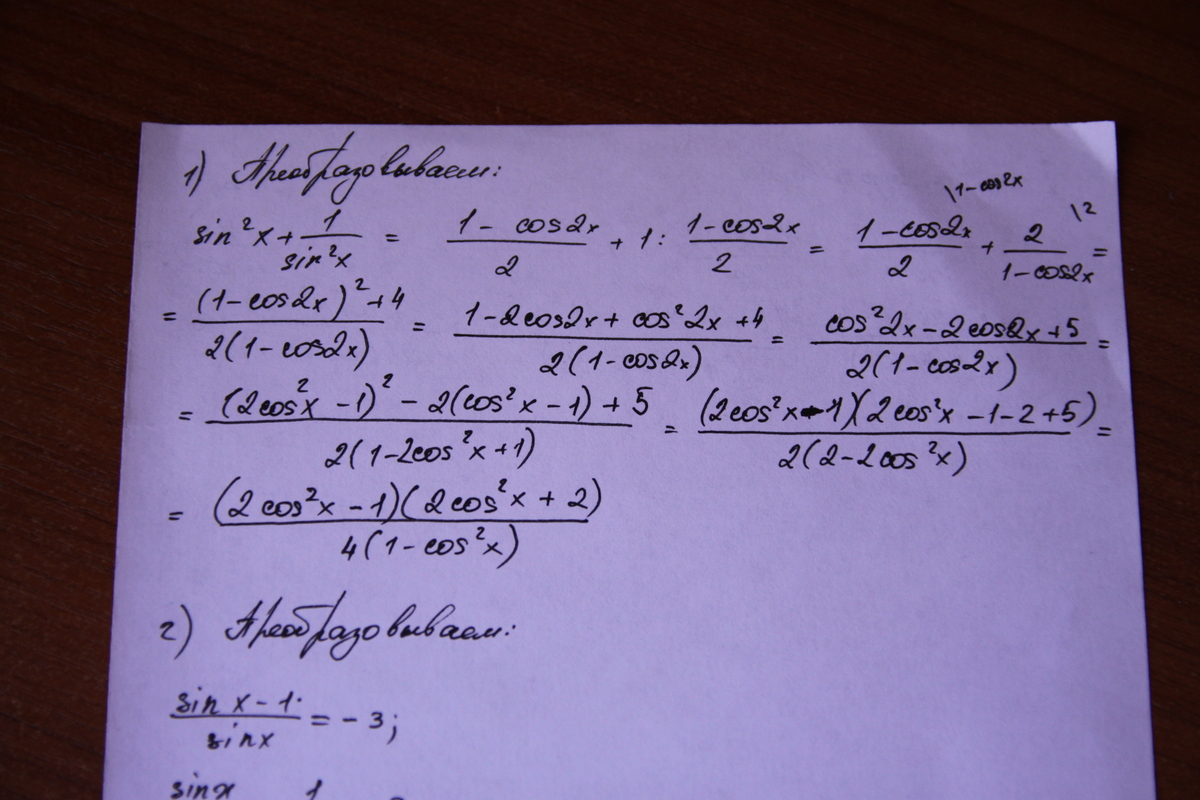 1) Преобразовываем:
sin²x + 1/sin²x = (1 - cos2x)/2 + 1 : (1-cos2x)/2 = (1-cos2x)/2 \1-cos2x + 2/(1-cos2x) \2 =
= ((1-cos2x)²+4)/(2(1-cos2x)) = (1-2cos2x + cos²2x +4)/(2(1-cos2x)) = (cos²2x-2cos2x+5)/(2(1-cos2x)) =
= ((2cos²x -1)² - 2(cos²x -1) + 5)/(2(1-2cos²x+1)) = ((2cos²x-1)(2cos²x -1-2+5))/(2(2-2cos²x)) =
= ((2cos²x -1)(2cos²x + 2))/(4(1-cos²x))
2) Преобразовываем:
(sin x - 1)/(sin x) = - 3;
sinx 1